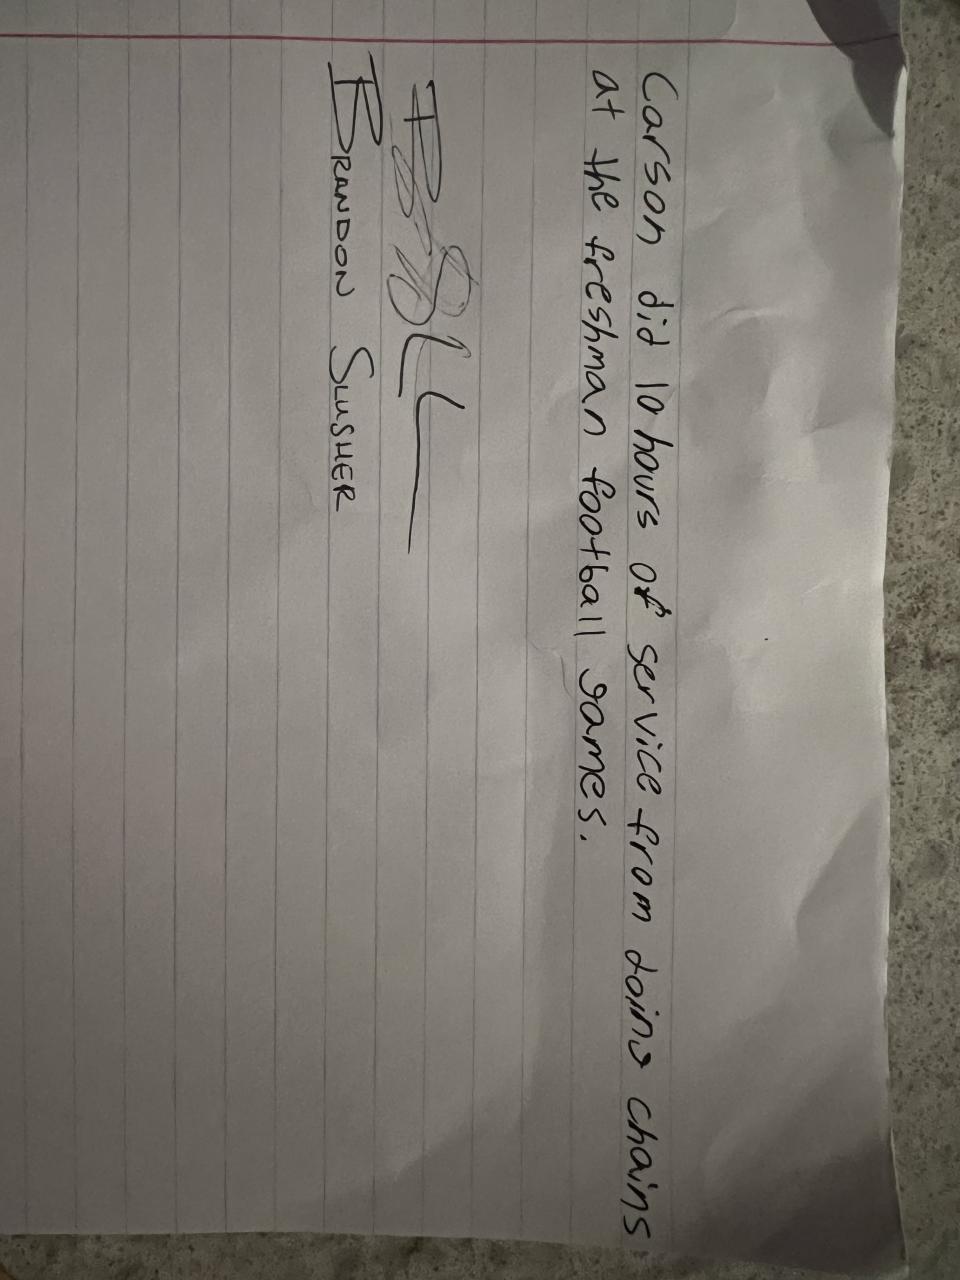 Carson did 10 hours of service from doing chains
at the freshman football games.
BRANDON SLUSHER